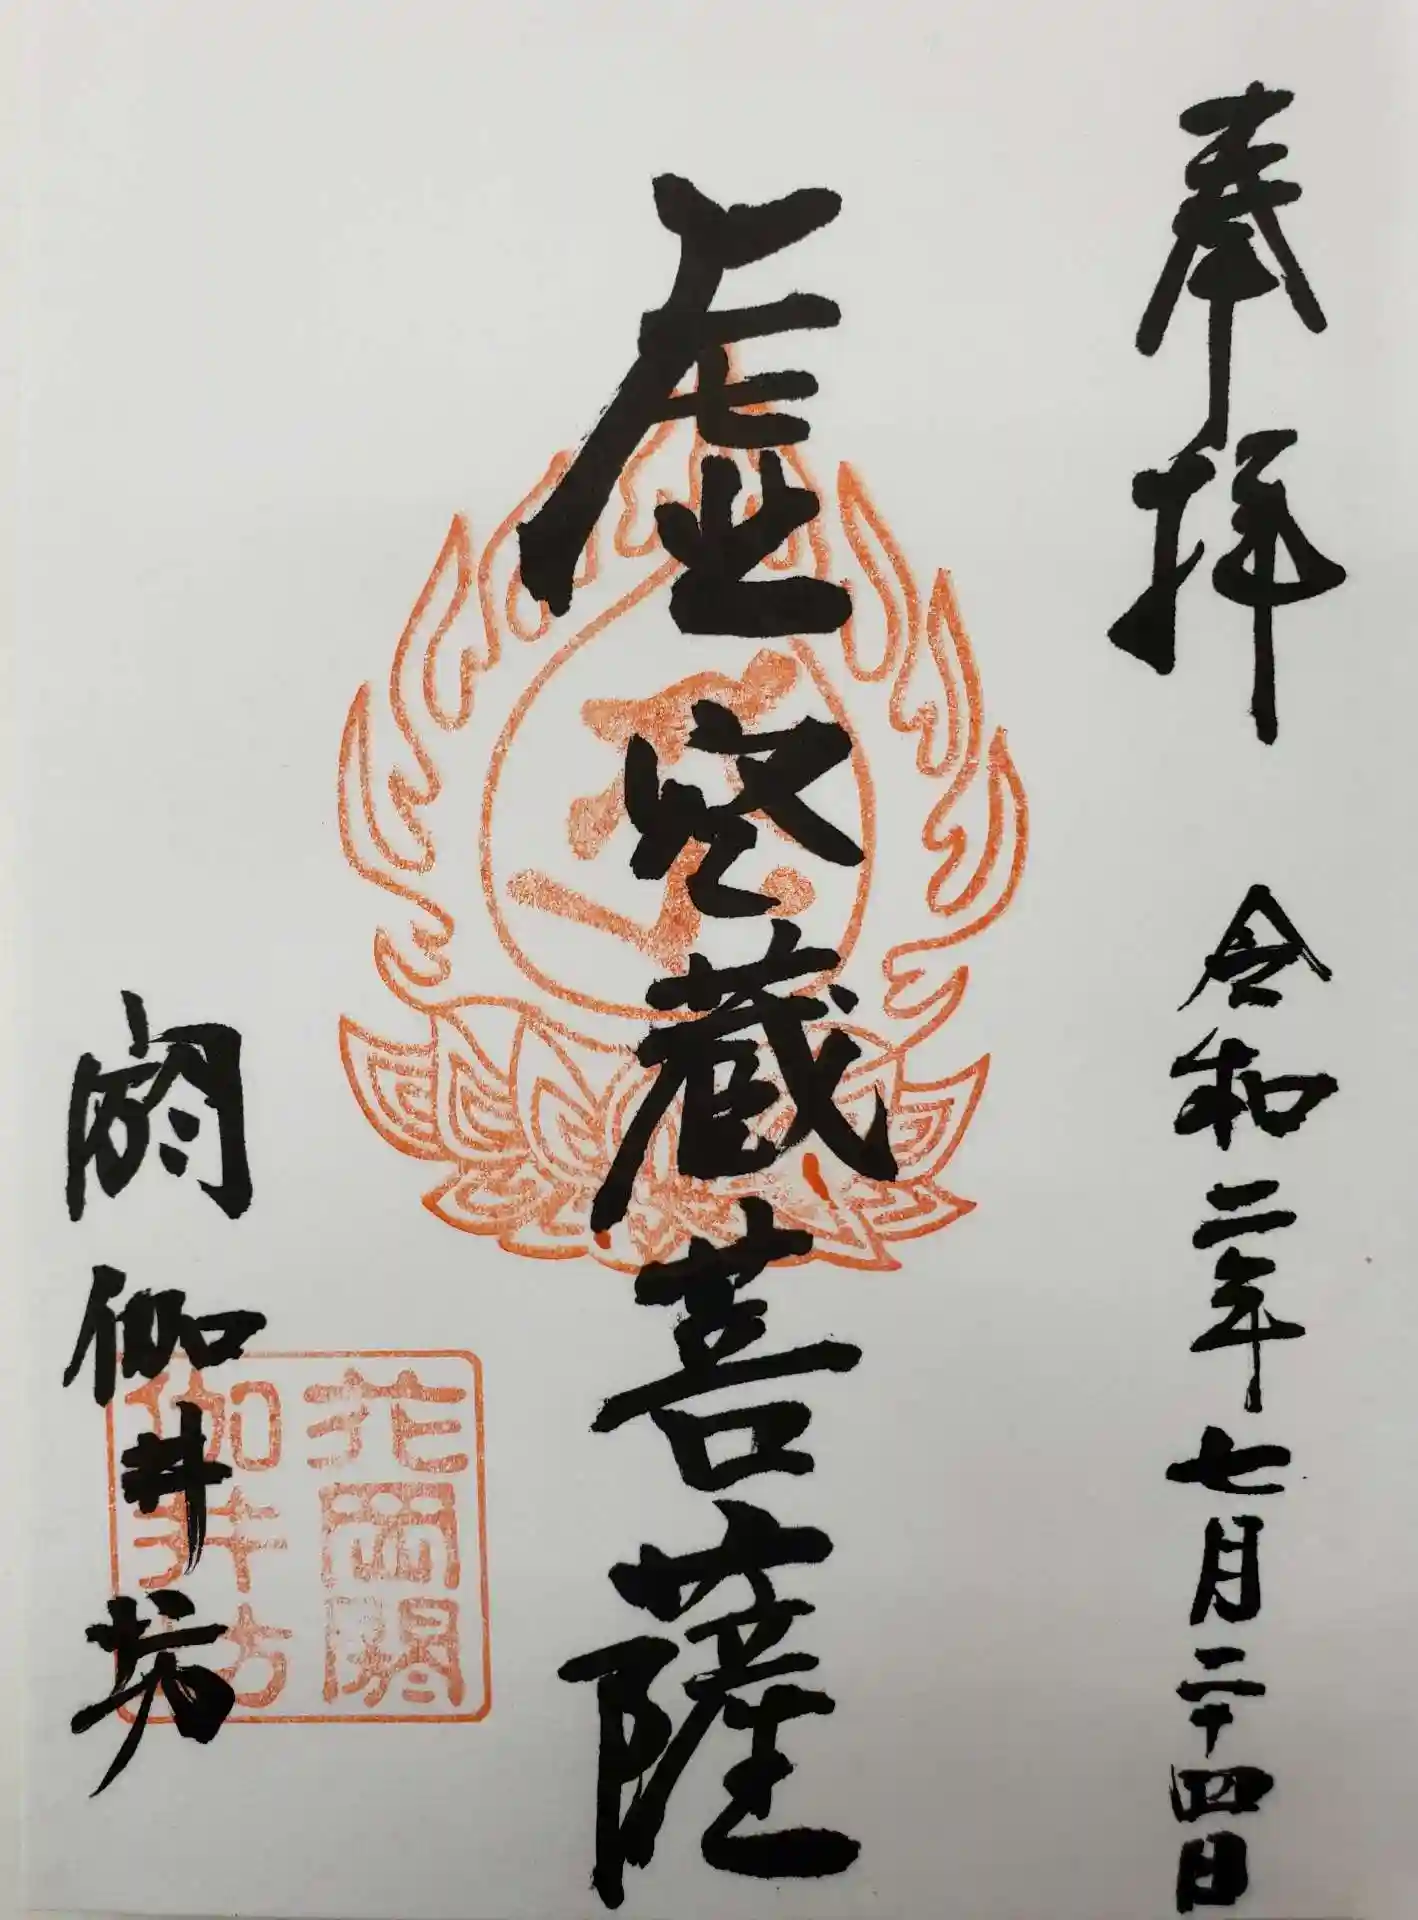 奉拝 令和二年七月二十四日
虚空蔵菩薩
閼伽井坊
花岡閼
伽井坊